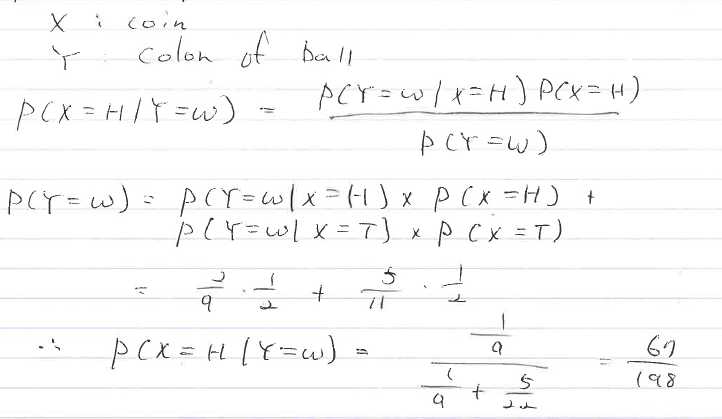 X : coin
Y : Color of ball
P(X=H/Y=w) = P(Y=w/X=H) P(X=H) / P(Y=w)
P(Y=w) = P(Y=w|X=H) x P(X=H) +
P(Y=w|X=T) x P(X=T)
= 2/9 · 1/2 + 5/11 · 1/2
∴ P(X=H/Y=w) = (1/9) / (1/9 + 5/22) = 67/198